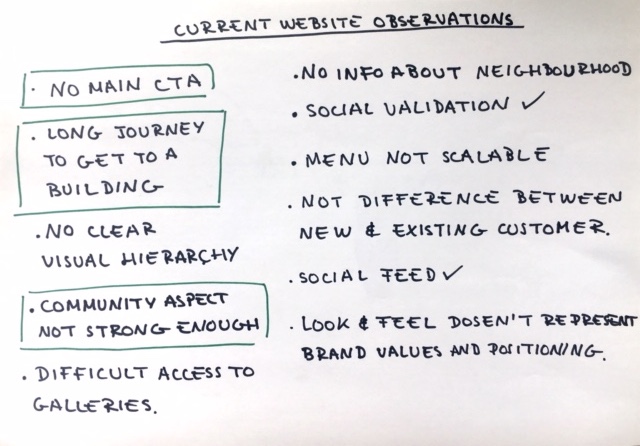 CURRENT WEBSITE OBSERVATIONS
· NO MAIN CTA
· LONG JOURNEY
TO GET TO A
BUILDING
· NO CLEAR
VISUAL HIERARCHY
· COMMUNITY ASPECT
NOT STRONG ENOUGH
· DIFFICULT ACCESS TO
GALLERIES.
· NO INFO ABOUT NEIGHBOURHOOD
· SOCIAL VALIDATION ✓
· MENU NOT SCALABLE
· NOT DIFFERENCE BETWEEN
NEW & EXISTING CUSTOMER.
· SOCIAL FEED ✓
· LOOK & FEEL DOSEN'T REPRESENT
BRAND VALUES AND POSITIONING.